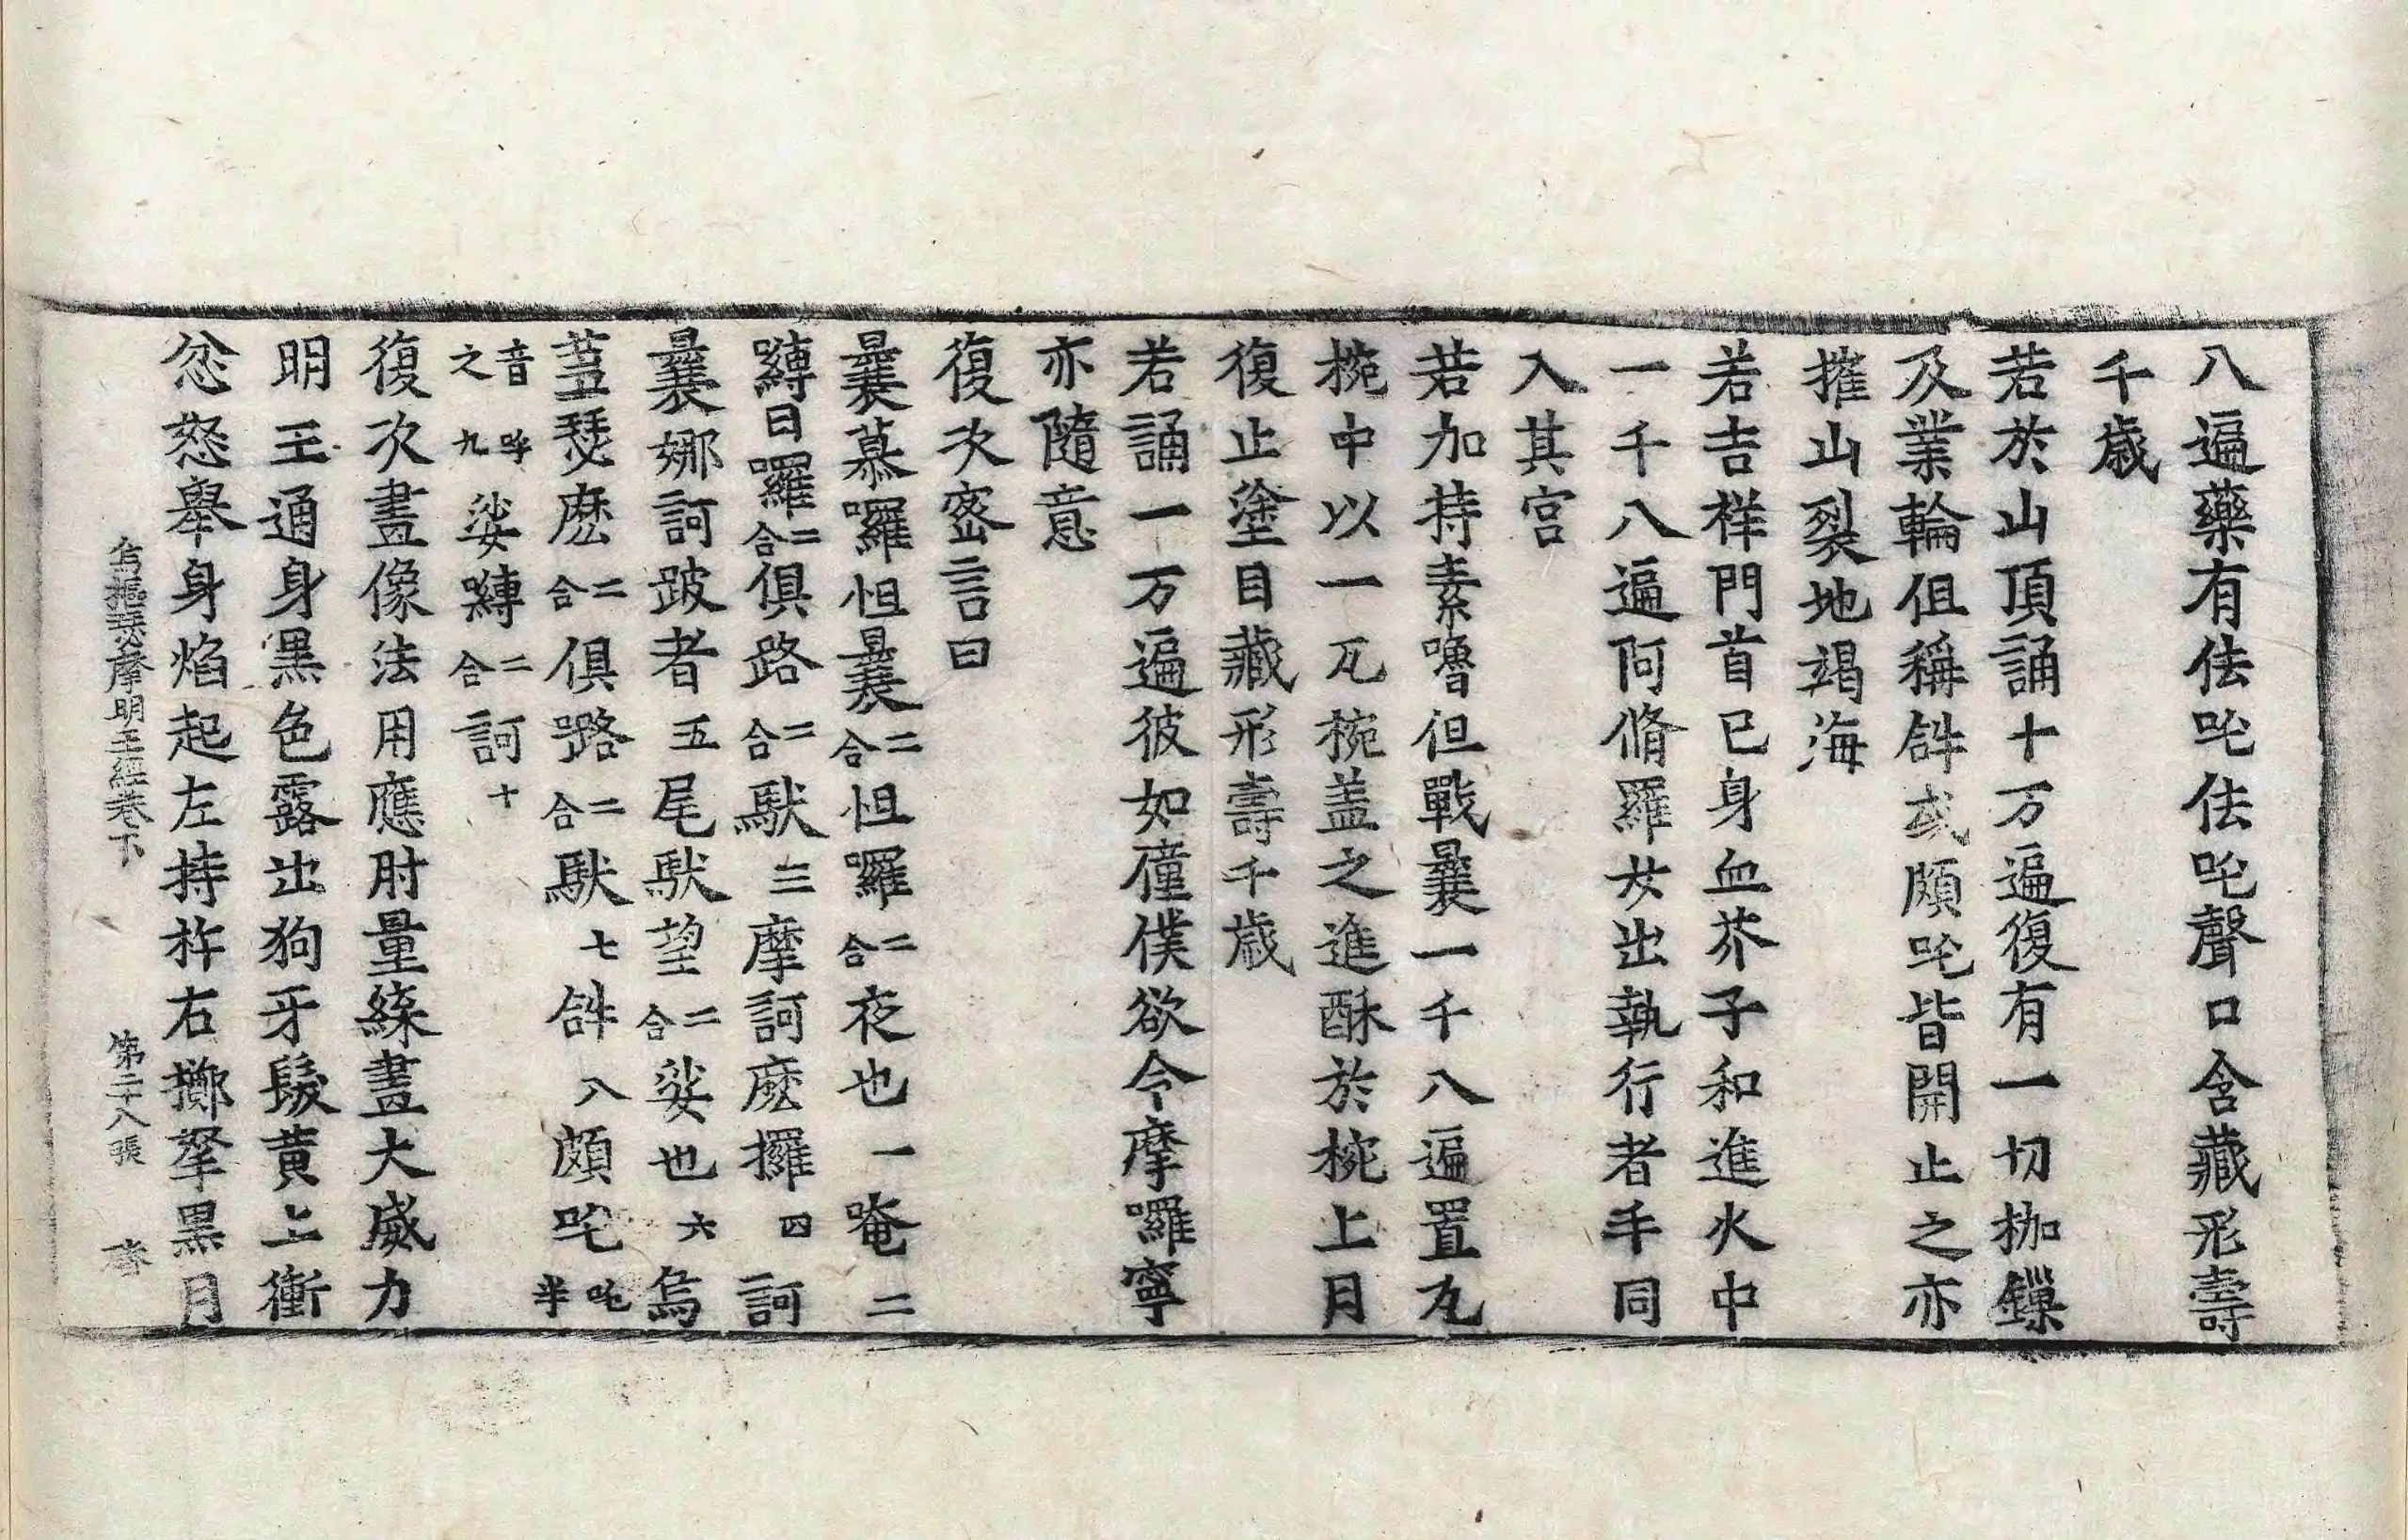 八遍藥有佉吒佉吒聲口含藏形壽
千歲
若於山頂誦十万遍復有一切枷鏁
及業輪但稱𤙖或頗吒皆開止之亦
摧山裂地竭海
若吉祥門首已身血芥子和進火中
一千八遍阿脩羅女出執行者手同
入其宮
若加持素嚕但戰曩一千八遍置瓦
椀中以一瓦椀盖之進酥於椀上月
復止塗目藏形壽千歲
若誦一万遍彼如僮僕欲令摩囉寧
亦隨意
復次密言曰
曩慕囉怛曩二合怛囉二合夜也一唵二
嚩日囉二合俱路二合馱三摩訶麽攞四訶
曩娜訶跛者五尾馱望二合娑也六烏
䒷瑟麽二合俱嚕二合馱七𤙖八頗吒吒半
音呼之九娑嚩二合訶十
復次畫像法用應肘量緤畫大威力
明王通身黑色露出狗牙髮黃上衝
忿怒舉身焰起左持杵右擲拏黑月
烏樞瑟摩明王經卷下 第二十八張